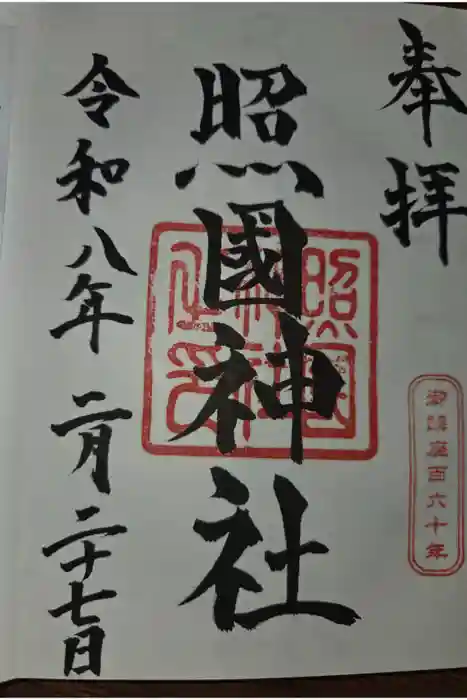 奉拝
御鎮座百六十年
照國神社
照国神社
令和八年 二月二十七日